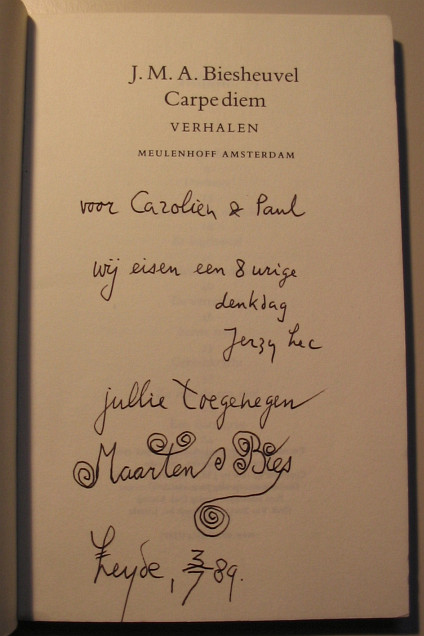 J. M. A. Biesheuvel
Carpe diem
VERHALEN
MEULENHOFF AMSTERDAM
voor Carolien & Paul
wij eisen een 8 urige
denkdag
Jerzy Lec
jullie toegenegen
Maarten Bies
Leyde, 3/7 89.